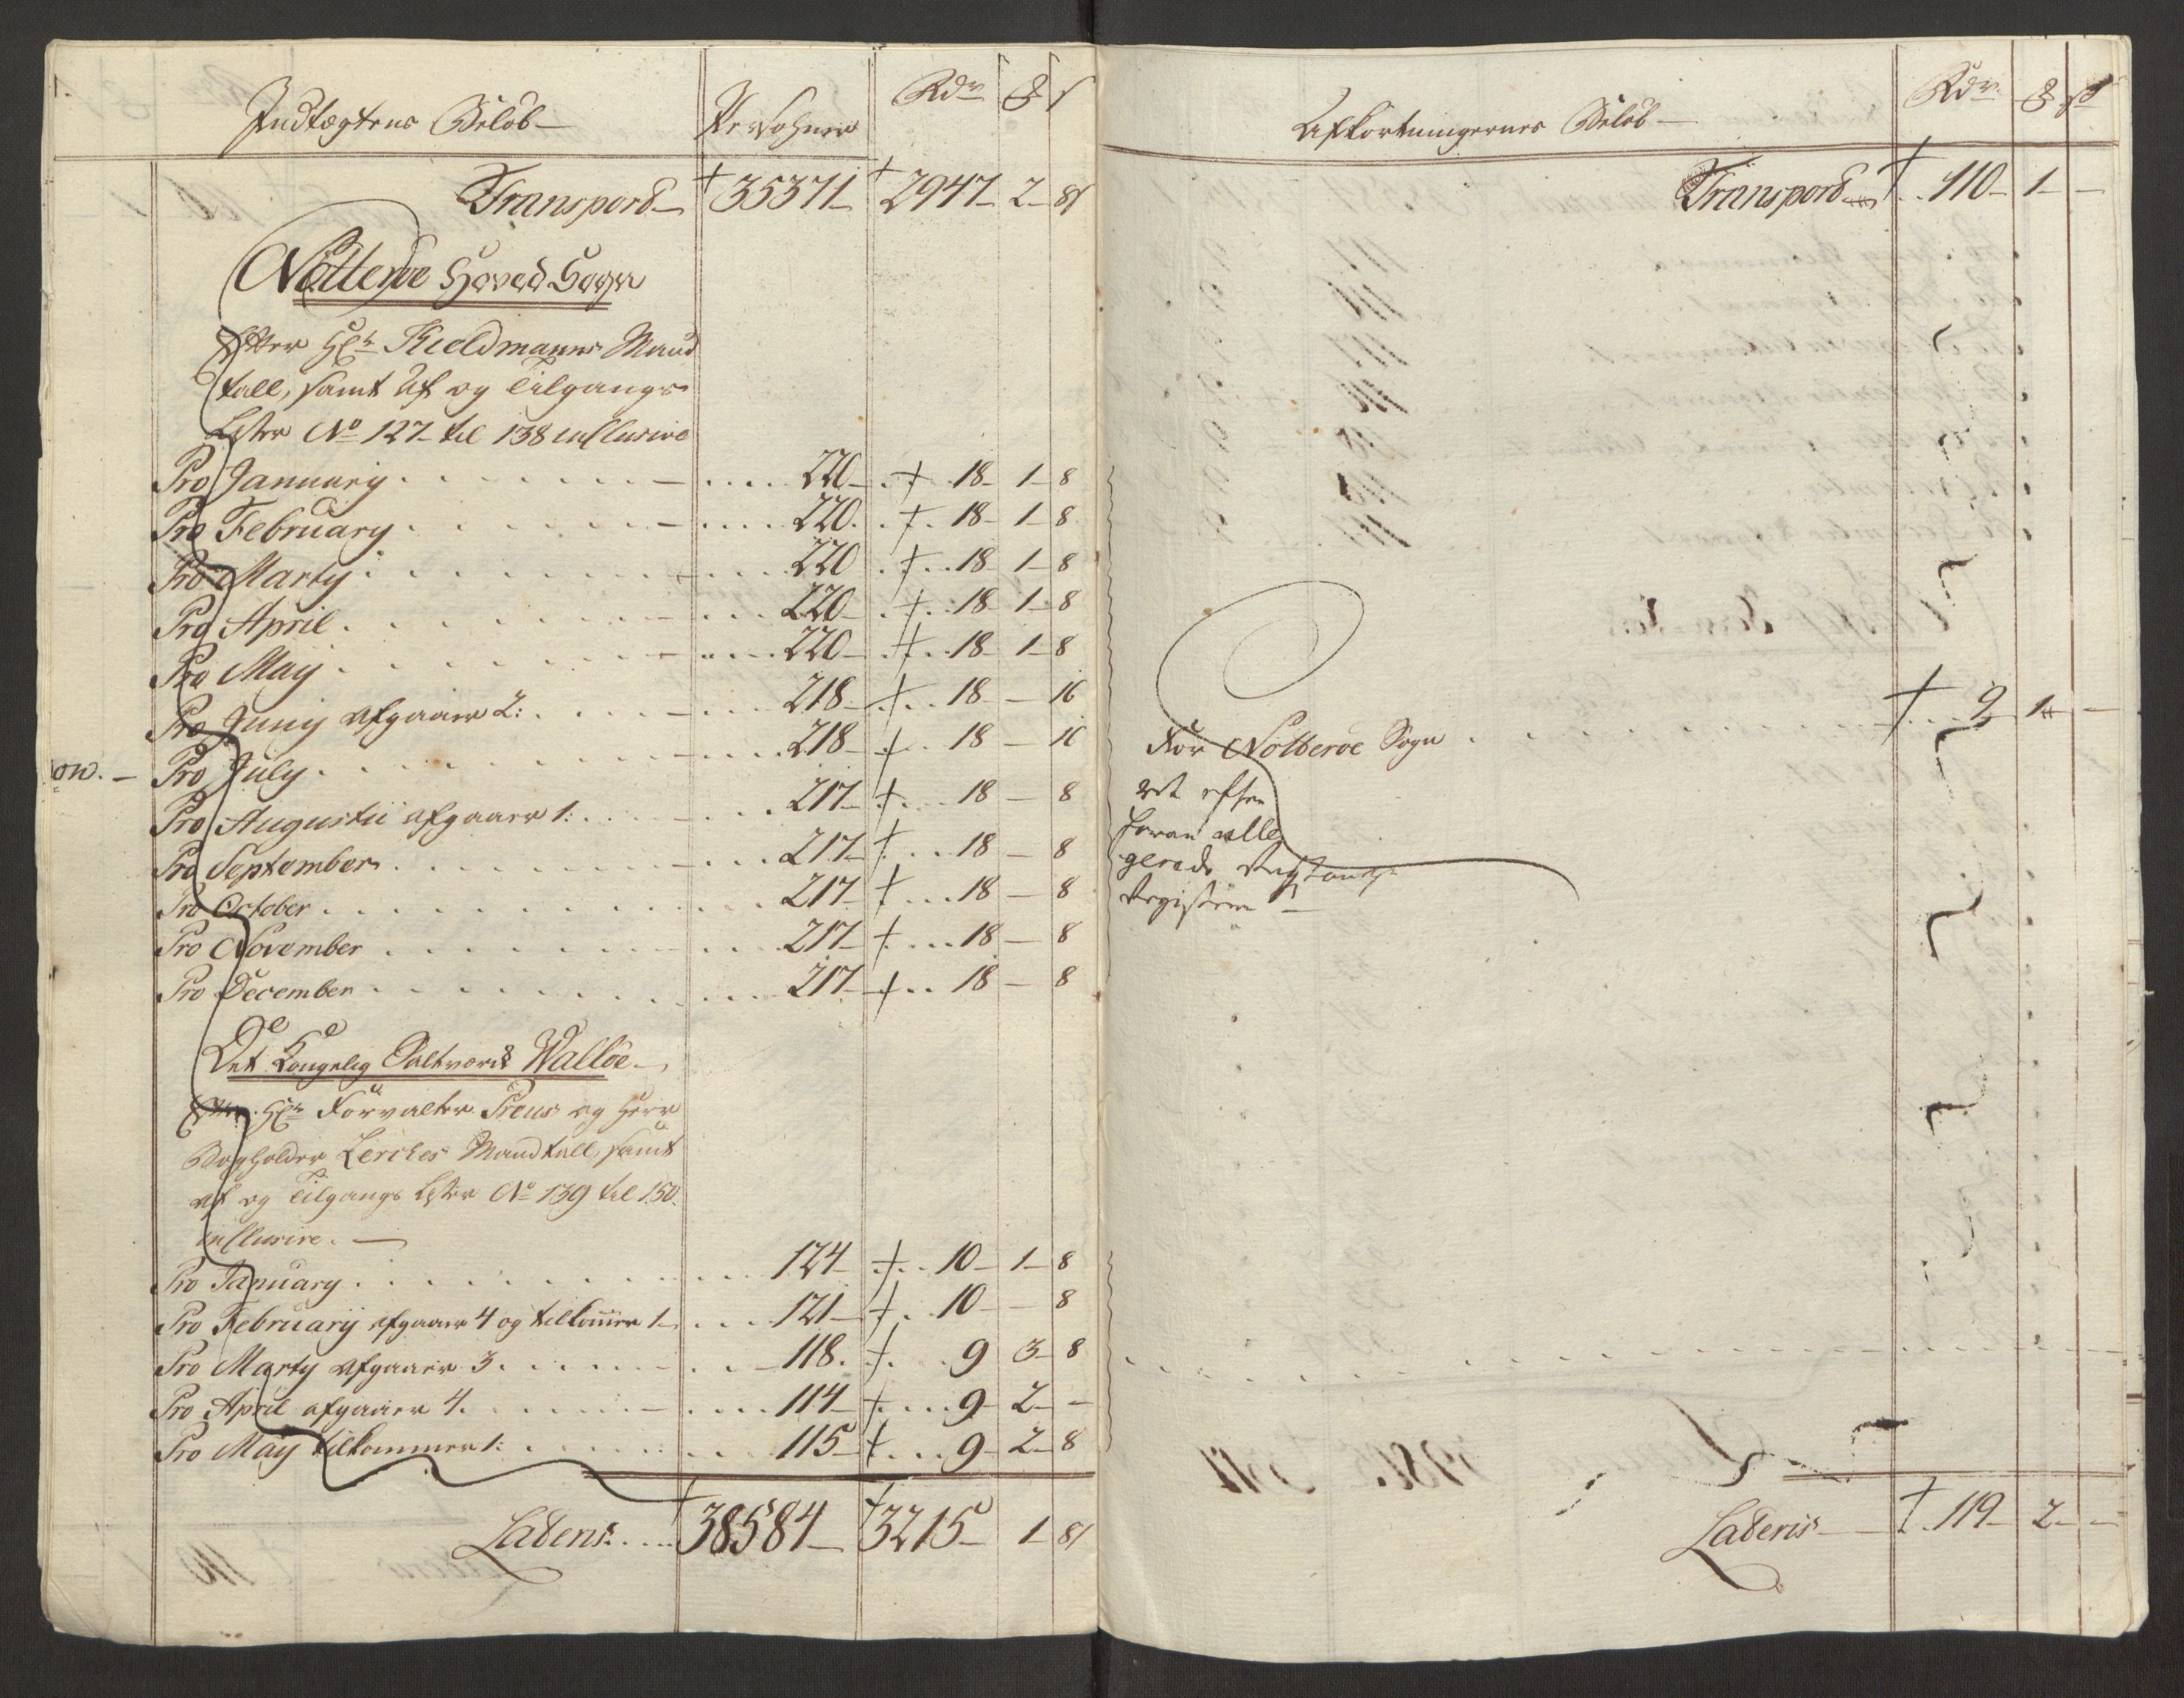 Indtægtens Beløb — Persohner Rdr ß
Transpord — 35371 — 2947 — 2 — 8ß
Nötteröe Hoved Sogn
Efter Hr Kieldmanns Mand
tall, samt Af og Tilgangs
Lister No 127 til 138 inclusive
Pro January . . . 220 — 18 — 1 — 8
Pro February . . . 220 . 18 — 1 — 8
Pro Marty . . . 220 . 18 1 — 8
Pro April . . . 220 — 18 — 1 — 8
Pro Maij . . . 220 — 18 — 1 — 8
Pro Junij afgaaer 2: . . . 218 — 18 — — 16
Pro July . . . 218 — 18 — 16
Pro Augustii afgaaer 1: . . . 217 — 18 — 8
Pro September . . . 217 — 18 — 8
Pro October . . . 217 — 18 — 8
Pro November . . . 217 — 18 — 8
Pro December . . . 217 — 18 — 8
Det Kongelig Saltværk Walløe —
Efter Hr Forvalter Preus og Herr
Bogholder Lerches Mandtall, samt
af og Tilgangs Lister No 139 til 150
inclusive. —
Pro January . . . 124 — 10 — 1 — 8
Pro Februarij afgaaer 4 og tilkommer 1 — . . . 121 — 10 — — 8
Pro Marty afgaaer 3 . . . 118 . 9 3 — 8
Pro April afgaaer 4 . . . 114 — 9 — 2 — —
Pro Maij tilkommer 1: . . . 115 — 9 — 2 — 8
Lateris . . . 38584 — 3215 — 1 — 8ß
Afkortningernes Beløb — Rdr ß
Transpord — 110 — 1 — —
For Nötteröe Sogn . . . 9 1 —
foran alle
gerede
Lateris — 119 — 2 — —